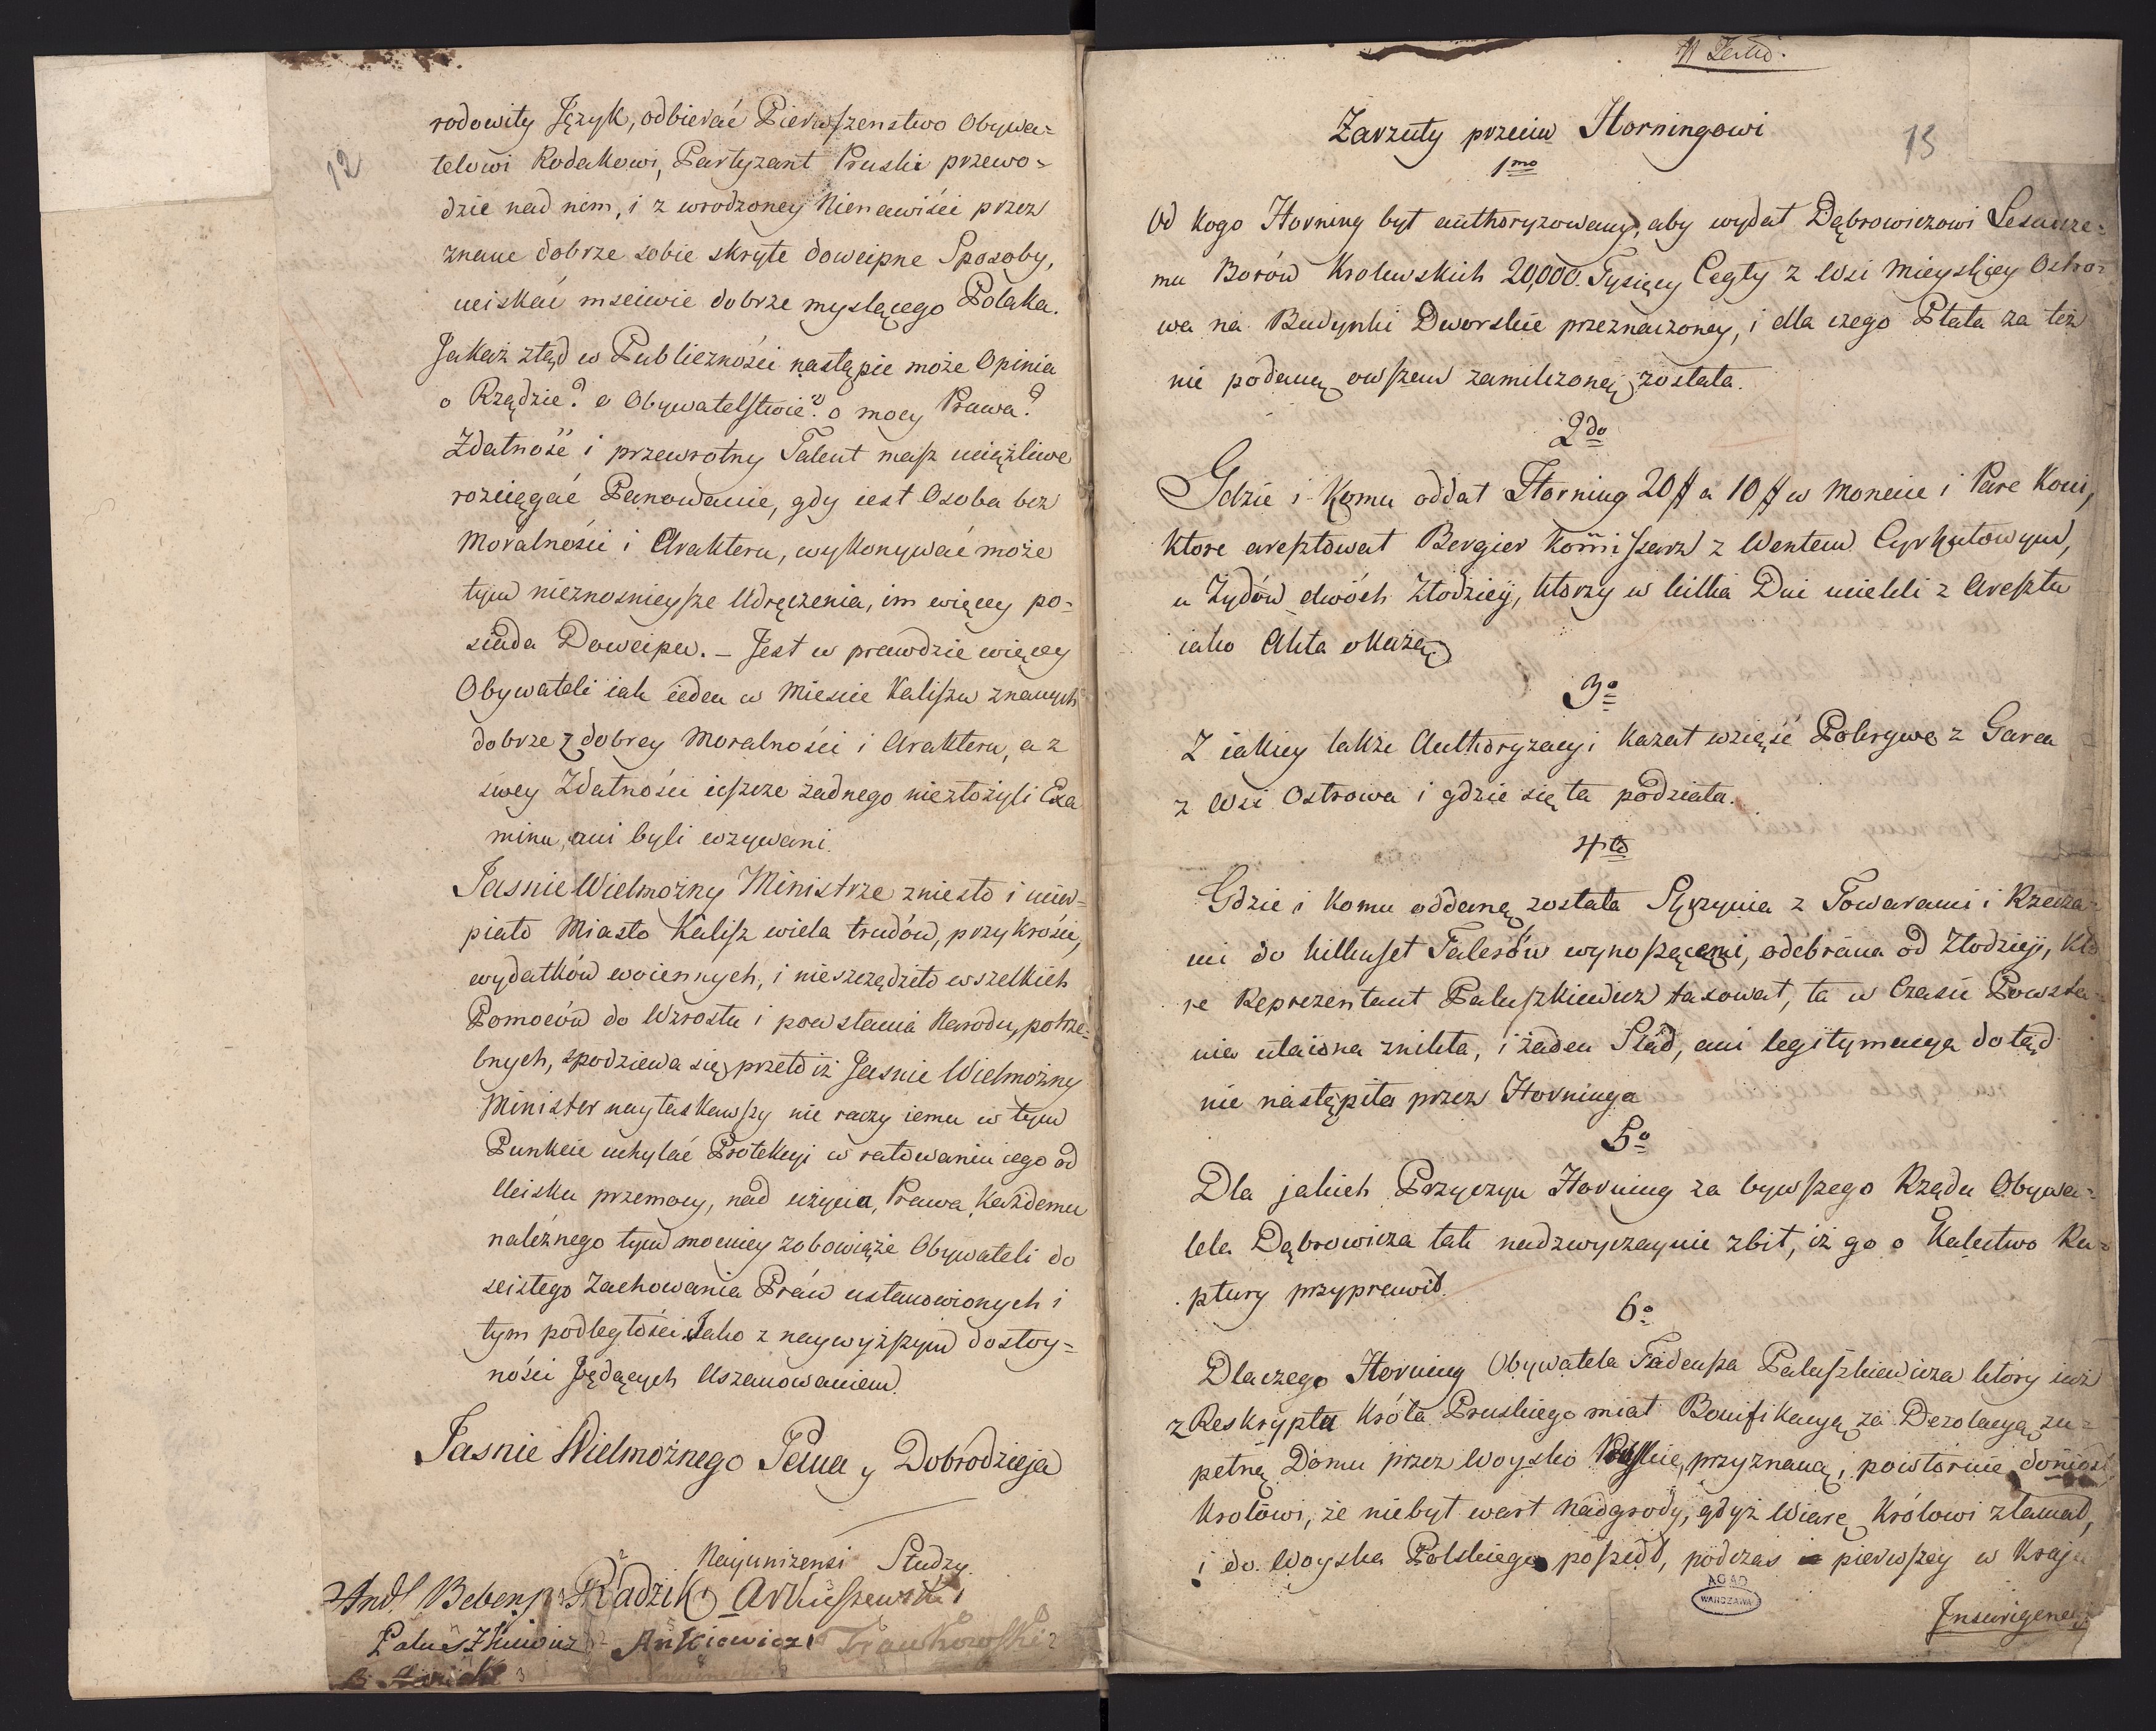 12
rodowity Język, odbierać Pierwszenstwo Obywa=
telowi Rodakowi, Partyzant Pruski przewo=
dzic nad nim, i z wrodzoney Nienawiści przez
znane dobrze sobie skryte dowcipne Sposoby,
uciskać mściwie dobrze myslącego Polaka.
Jakaż ztąd w Publiczności nastąpic może Opinia
o Rządzie? o Obywatelstwie? o mocy Prawa?
Zdatność i przewrotny Talent masz uciążliwe
rozciągać Panowanie, gdy iest Osoba bez
Moralności i Charakteru, wykonywać może
tym nieznosnieysze Udręczenia, im więcey po=
siada Dowcipu. – Jest w prawdzie więcey
Obywateli iak ieden w Miescie Kaliszu znanych
dobrze z dobrey Moralności i Charakteru, a z
swey Zdatności ieszcze żadnego niezłożyli Exa
minu, ani byli wzywani.
Jasnie Wielmożny Ministrze zniesło i
piało Miasto Kalisz wiela trudów, przykrości,
wydatków woiennych, i nieszczędziło wszelkich
Pomoców do Wzrostu i powstania Narodu, potrze=
bnych, spodziewa się przeto iż Jasnie Wielmożny
Minister nayłaskawszy nie raczy iemu w tym
Punkcie uchylać Protekcyi w ratowaniu iego od
Ucisku przemocy, nad użycia, Prawa każdemu
należnego tym mocniey zobowiąże Obywateli do
scisłego Zachowania Praw ustanowionych i
tym podległości Jako z naywyższym dostoy=
ności Jędących Uszanowaniem.
Jasnie Wielmożnego Pana y Dobrodzieja
Nayunizensi Studzy.
Radzik Arkuszewski
Paluszkiewicz Ankiewicz Trankowski
13
Zarzuty przeciw Horningowi
1mo
Od kogo Horning był authoryzowany, aby wydał Dąbrowiczowi Lesnicze=
mu Borów Krolewskich 20,000. Tysięcy Cegły z Wsi Mieyskiey Ostro=
wa na Budynki Dworskie przeznaczoney, i dla czego Płata za też
nie podaną owszem zamilczoną została.
2do
Gdzie i Komu oddał Horning 20 # a 10 # w Monecie i Pare Koni,
ktore aresztował Bergier Kommissarz z Wentem Cyrkułowym,
u Żydów dwóch Złodziey, ktorzy w kilka Dni uciekli z Aresztu
iako Akta okażą.
3o
Z iakiey także Authoryzacyi kazał wziąść Pokrywę z Garca
z Wsi Ostrowa i gdzie się ta podziała.
4to
Gdzie i Komu oddaną została Skrzynia z Towarami i Rzecza=
mi do kilkuset Talerów wynoszącemi, odebrana od Złodzieji, kto
re Reprezentant Paluszkiewicz taxował, ta w Czasie Powsta=
nia utaiona znikła, i żaden Slad, ani legitymacya dotąd
nie nastąpiła przez Horninga
5o
Dla jakich Przyczyn Horning za bywszego Rządu Obywa=
tela Dąbrowicza tak nadzwyczaynie zbił, iż go o Kalectwo Ru=
ptury przyprawił.
6o
Dlaczego Horning Obywatela Tadeusza Paluszkiewicza ktory iuż
z Reskryptu Króla Pruskiego miał Bonifikacyą za Dezolacyą zu=
pełną Domu przez Woysko Ruskie, przyznaną, powtórnie doniosł
Krolowi, że niebył wart nadgrody, gdyż Wiarę Królowi złamał,
i do Woyska Polskiego poszedł, podczas pierwszey w Kraju
Insurigencyi
AGAD
WARSZAWA